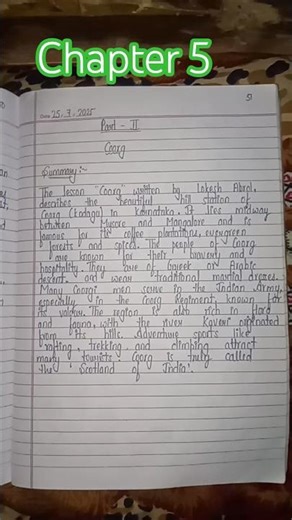 Chapter 5
51
Date 25.7.2025
Part - II
Coorg
Summary:-
The lesson "Coorg" written by Lokesh Abrol,
describes the beautiful hill station of
Coorg (kodagu) in Karnataka. It lies midway
between Mysore and Mangalore and is
famous for its coffee plantations, evergreen
forests and spices. The people of Coorg
are known for their bravery and
hospitality. They are of Greek or Arabic
descent and wear traditional martial dresses.
Many Coorgi men serve in the Indian Army,
especially in the Coorg Regiment, known for
its valour. The region is also rich in flord
and fauna, with the river Kaveri originated
from its hills. Adventure sports like
rafting, trekking and climbing attract
many tourists. Coorg is truly called
the 'Scotland of India'.